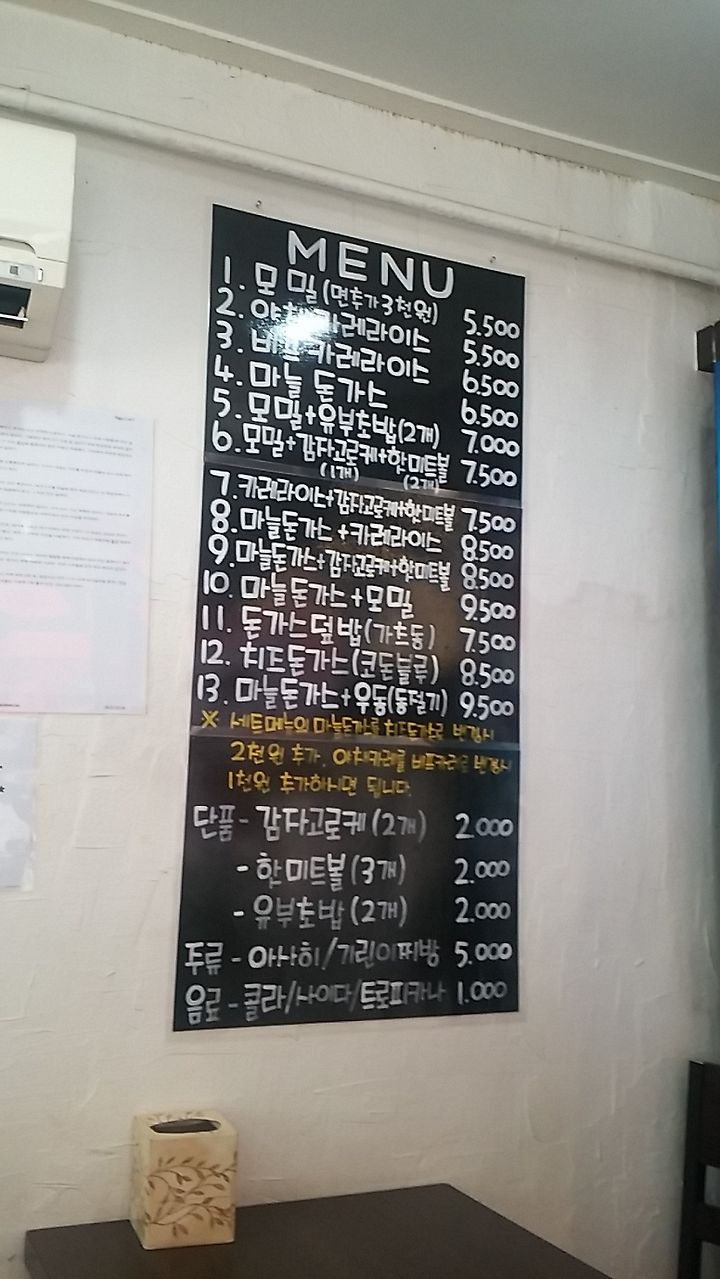 MENU
1. 모밀(면추가3천원) 5.500
2. 야채카레라이스 5.500
3. 비프카레라이스 6.500
4. 마늘 돈가스 6.500
5. 모밀+유부초밥(2개) 7.000
6. 모밀+감자고로케+핫미트볼 7.500
(1개) (2개)
7. 카레라이스+감자고로케+핫미트볼 7.500
8. 마늘돈가스+카레라이스 8.500
9. 마늘돈가스+감자고로케+핫미트볼 8.500
10. 마늘돈가스+모밀 9.500
11. 돈가스덮밥(가츠동) 7.500
12. 치즈돈가스(코돈블루) 8.500
13. 마늘돈가스+우동(동절기) 9.500
※ 세트메뉴의 마늘돈가스를 치즈돈가스로 변경시
2천원 추가, 야채카레를 비프카레로 변경시
1천원 추가하시면 됩니다.
단품- 감자고로케(2개) 2.000
- 핫미트볼(3개) 2.000
- 유부초밥(2개) 2.000
주류- 아사히/기린이찌방 5.000
음료- 콜라/사이다/트로피카나 1.000